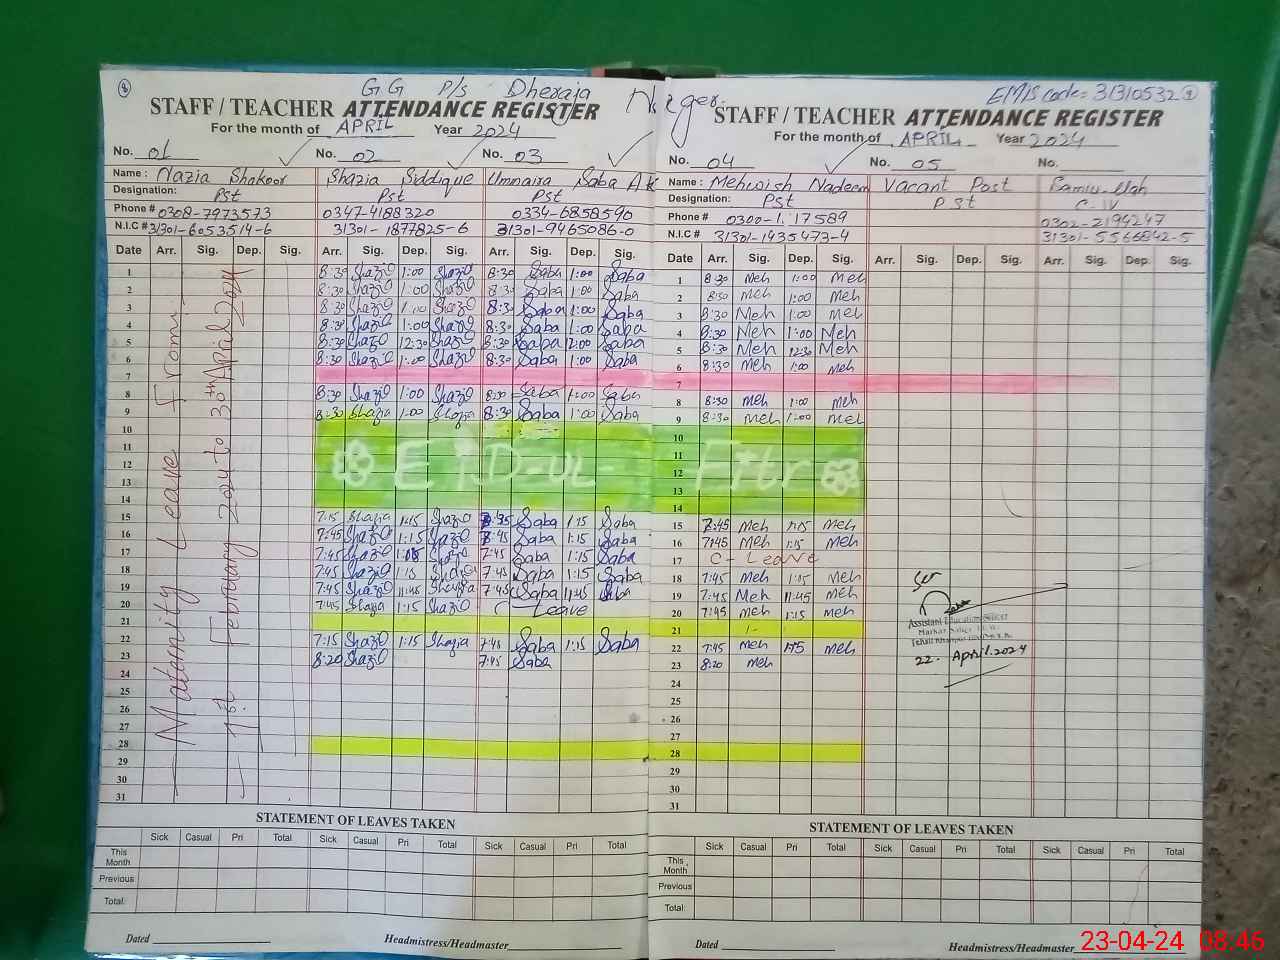 GG P/s Dheraja
STAFF / TEACHER ATTENDANCE REGISTER
For the month of APRIL Year 2024
No. 01 No. 02 No. 03
Name : Nazia Shakoor Shazia Siddique Ummaira Saba
Designation: Pst Pst Pst
Phone # 0308-7973573 0347-4188320 0334-6858590
N.I.C # 31301-6053514-6 31301-1877825-6 31301-9465086-0
Date Arr. Sig. Dep. Sig. Arr. Sig. Dep. Sig. Arr. Sig. Dep. Sig.
Matarnity Leave From:
1st February 2024 to 30th April 2024
1 8:30 Shazia 1:00 Shazia 8:30 Saba 1:00 Saba
2 8:30 Shazia 1:00 Shazia 8:30 Saba 1:00 Saba
3 8:30 Shazia 1:00 Shazia 8:30 Saba 1:00 Saba
4 8:30 Shazia 1:00 Shazia 8:30 Saba 1:00 Saba
5 8:30 Shazia 12:30 Shazia 8:30 Saba 12:00 Saba
6 8:30 Shazia 1:00 Shazia 8:30 Saba 1:00 Saba
7
8 8:30 Shazia 1:00 Shazia 8:30 Saba 1:00 Saba
9 8:30 Shazia 1:00 Shazia 8:30 Saba 1:00 Saba
10
11
12 EID-UL-
13
14
15 7:15 Shazia 1:15 Shazia Saba 1:15 Saba
16 7:45 Shazia 1:15 Shazia 7:45 Saba 1:15 Saba
17 7:45 Shazia Shazia 7:45 Saba 1:15 Saba
18 7:45 Shazia 1:15 Shazia 7:45 Saba 1:15 Saba
19 7:45 Shazia 11:45 Shazia 7:45 Saba 11:45 Saba
20 7:45 Shazia 1:15 Shazia C - Leave
21
22 7:15 Shazia 1:15 Shazia 7:45 Saba 1:15 Saba
23 8:20 Shazia 7:45 Saba
24
25
26
27
28
29
30
31
STATEMENT OF LEAVES TAKEN
Sick Casual Pri Total Sick Casual Pri Total Sick Casual Pri Total
This Month
Previous
Total:
Dated Headmistress/Headmaster
EMIS code= 31310532
STAFF / TEACHER ATTENDANCE REGISTER
For the month of APRIL Year 2024
No. 04 No. 05 No.
Name : Mehwish Nadeem Vacant Post Samiu-llah
Designation: Pst Pst C-IV
Phone # 0302-2194247
N.I.C # 31301-1435473-4 31301-5566842-5
Date Arr. Sig. Dep. Sig. Arr. Sig. Dep. Sig. Arr. Sig. Dep. Sig.
1 8:30 Meh 1:00 Meh
2 8:30 Meh 1:00 Meh
3 8:30 Meh 1:00 Meh
4 8:30 Meh 1:00 Meh
5 8:30 Meh 12:30 Meh
6 8:30 Meh 1:00 Meh
7
8 8:30 Meh 1:00 Meh
9 8:30 Meh 1:00 Meh
10
11
12 Fitr
13
14
15 7:45 Meh 1:15 Meh
16 7:45 Meh 1:15 Meh
17 C- Leave
18 7:45 Meh 1:15 Meh
19 7:45 Meh 11:45 Meh
20 7:45 Meh 1:15 Meh
21
22 7:45 Meh 1:15 Meh
23 8:20 Meh
24
25
26
27
28
29
30
31
Assistant Education Officer
22. April.2024
STATEMENT OF LEAVES TAKEN
Sick Casual Pri Total Sick Casual Pri Total Sick Casual Pri Total
This Month
Previous
Total:
Dated Headmistress/Headmaster
23-04-24 08:46